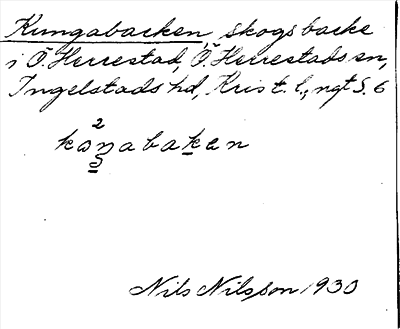 Kungabacken, skogsbacke
i Ö. Herrestad, Ö. Herrestads sn,
Ingelstads hd, Krist. l., ngt S. 6
kaŋabakan
Nils Nilsson 1930